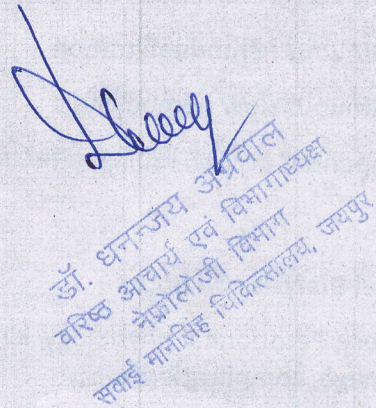 डॉ. धनन्जय अग्रवाल
वरिष्ठ आचार्य एवं विभागाध्यक्ष
नेफ्रोलोजी विभाग
सवाई मानसिंह चिकित्सालय, जयपुर